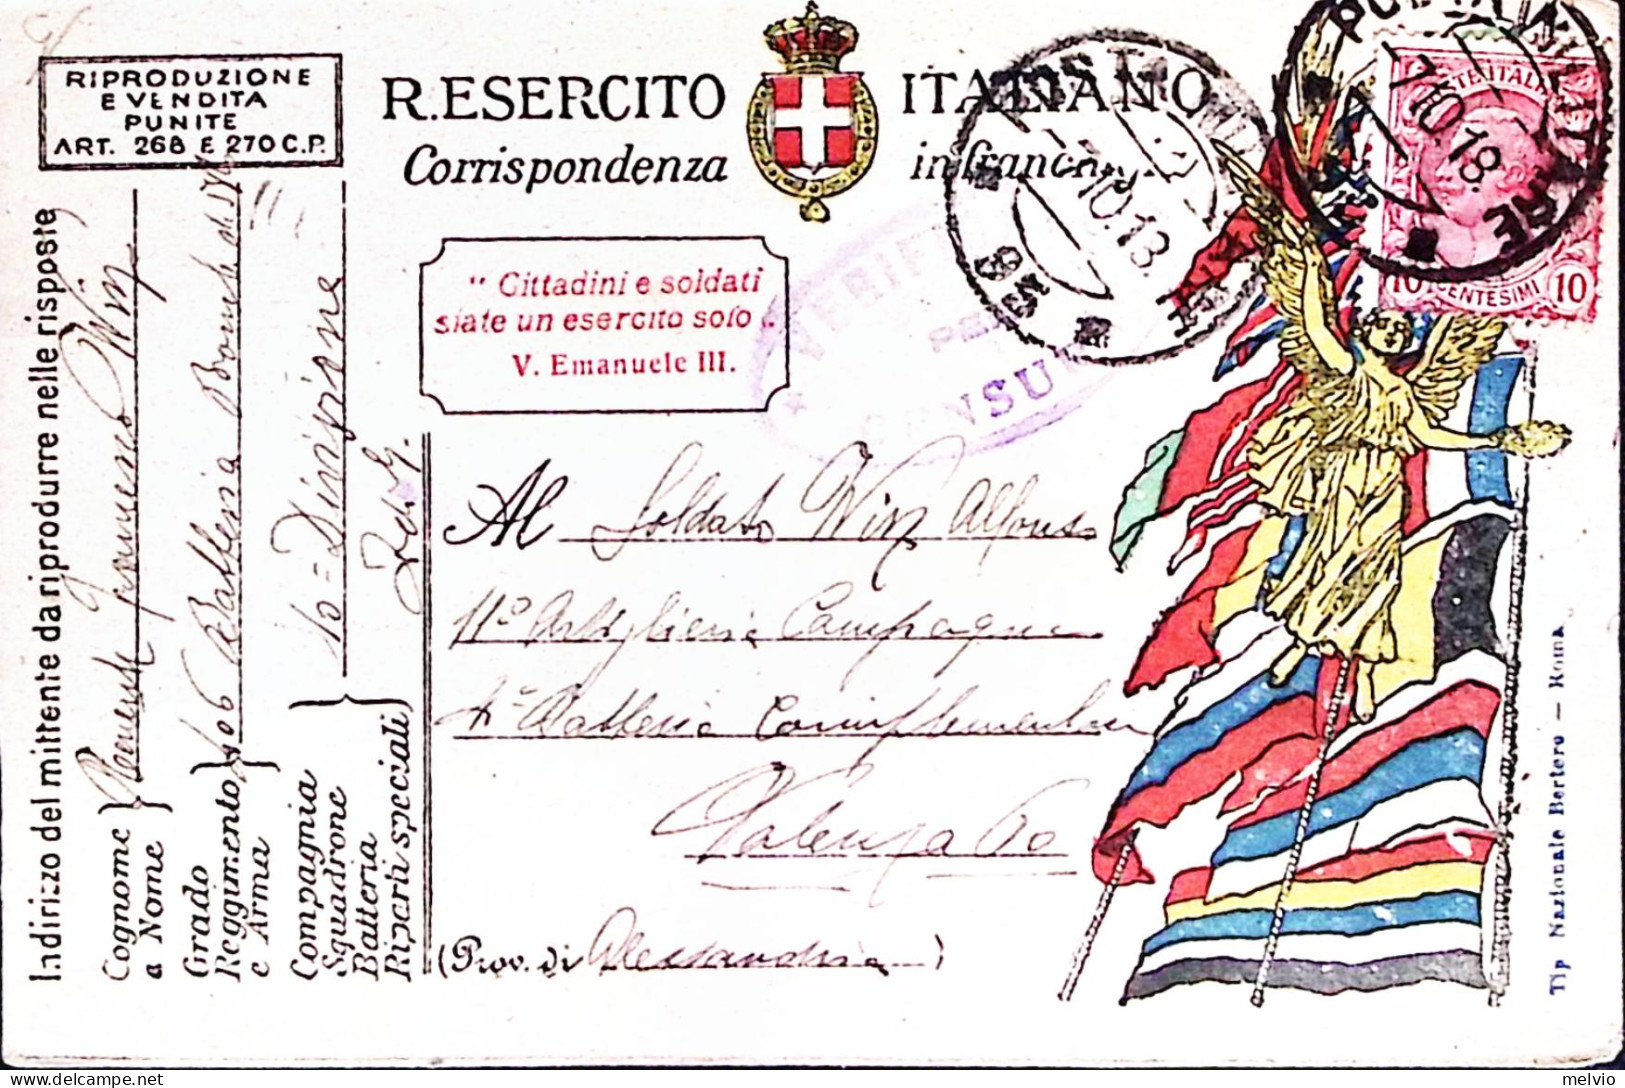 RIPRODUZIONE
E VENDITA
PUNITE
ART. 268 E 270 C.P.
R. ESERCITO ITALIANO
Corrispondenza in franchigia
POSTA MILITARE
7 10.18.
POSTE ITALIANE
10 CENTESIMI 10
POSTA MILITARE
10.18.
95
VERIFICATO
PER
CENSURA
" Cittadini e soldati
siate un esercito solo „
V. Emanuele III.
Al Soldato Alfonso
11° Artiglieria Campagna
Batteria Complementare
Valenza Po
(Prov. di Alessandria)
Indirizzo del mittente da riprodurre nelle risposte
Cognome
a Nome
Grado
Reggimento
e Arma
Batteria
Compagnia
Squadrone
Batteria
Riparti speciali
10 = Divisione
Tip Nazionale Bertero — Roma
melvio